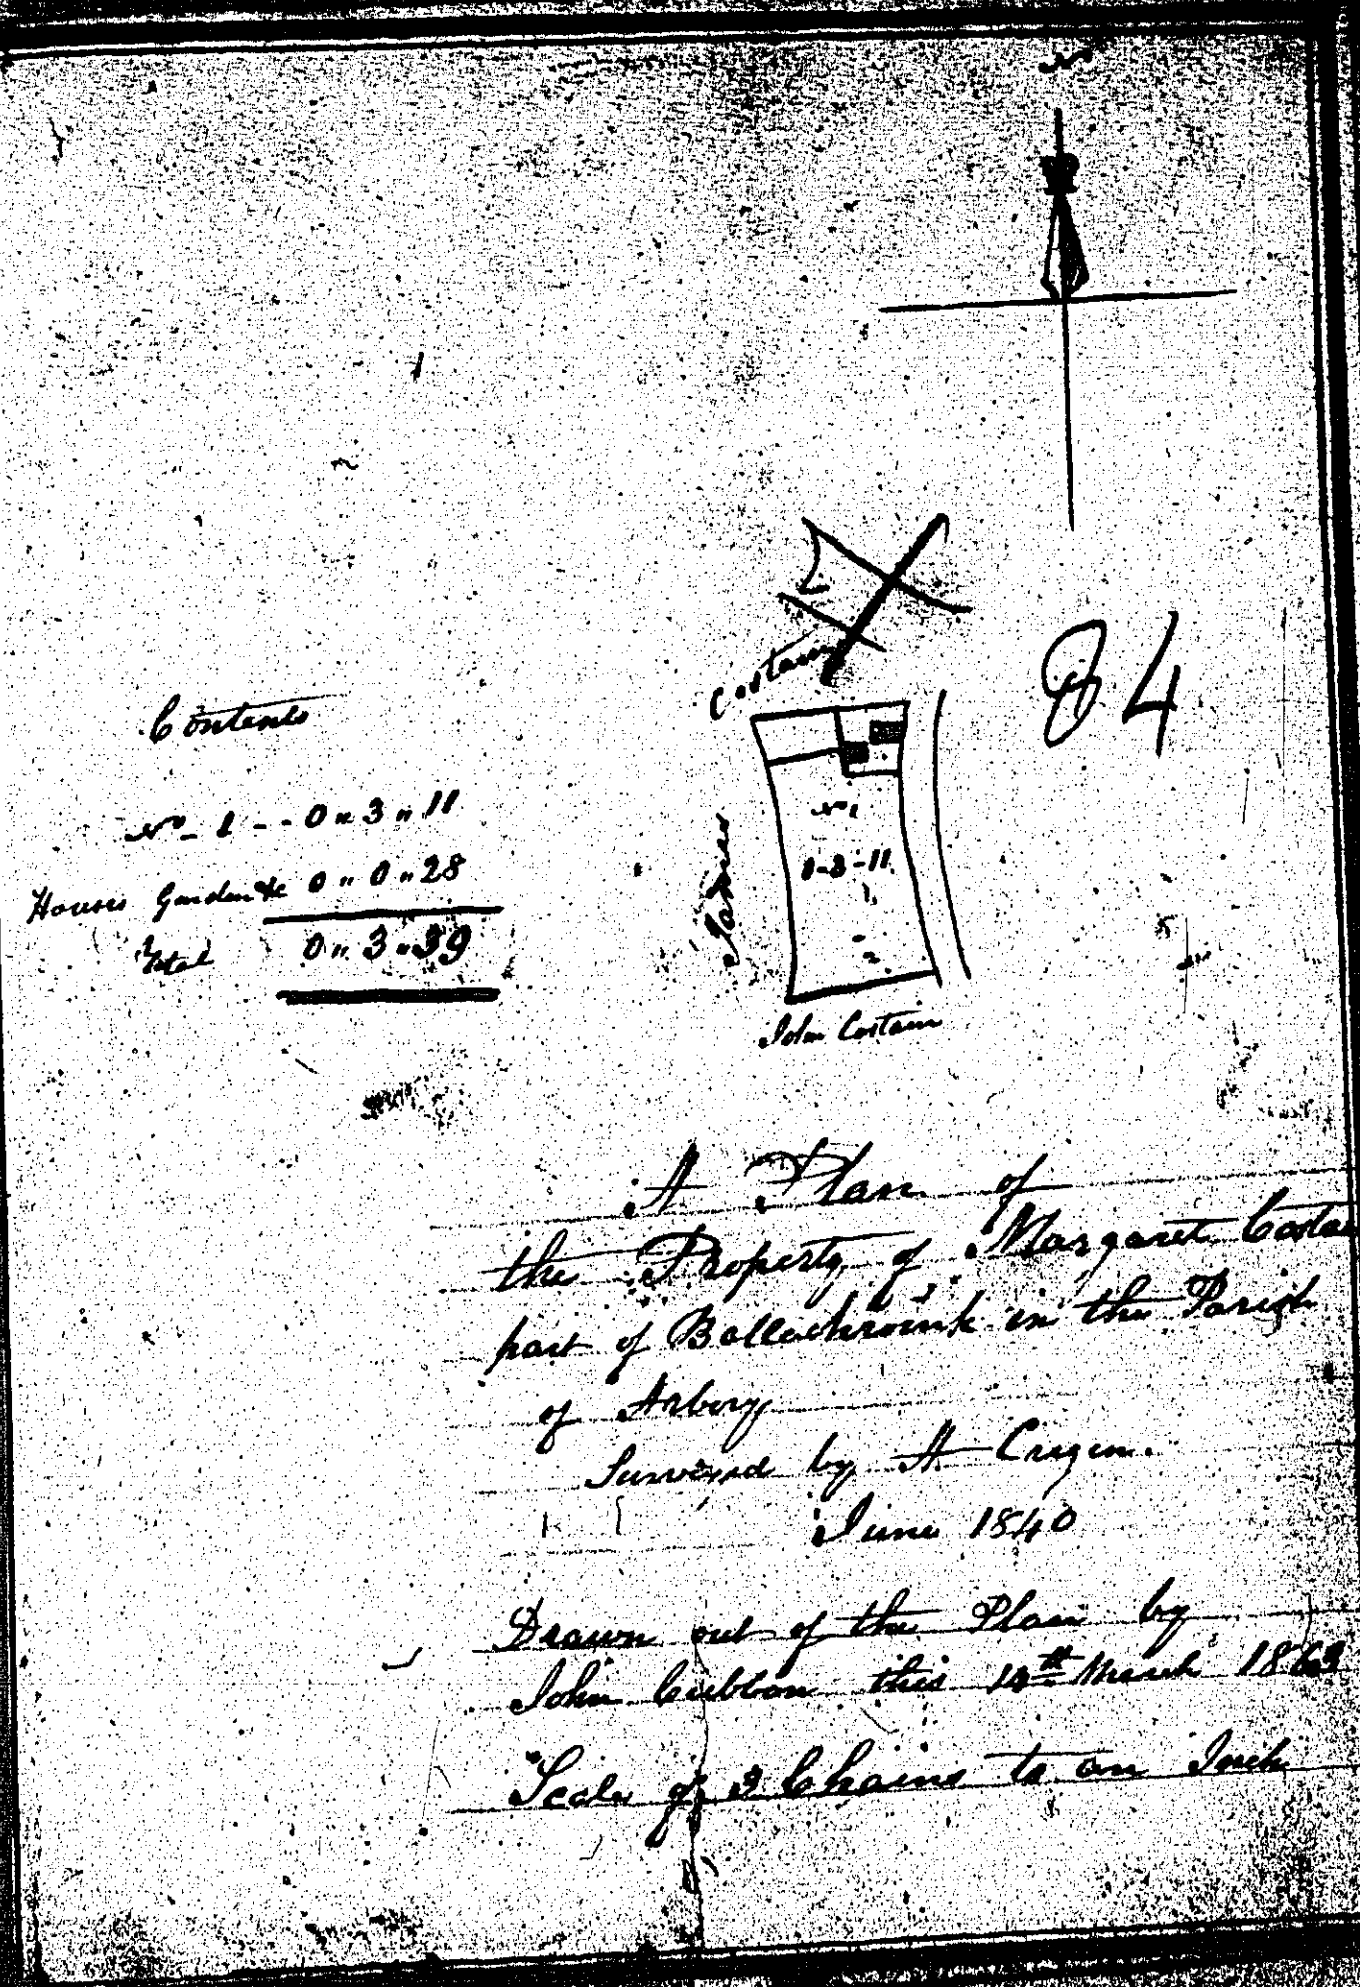 N
84
Costain
Contents
No - 1 - - 0 " 3 " 11
Houses Garden &c 0 " 0 " 28
Total 0 " 3 " 39
No 1
0-3-11
John Costain
A Plan of
the Property of Margaret Costain
part of Ballachrink in the Parish
of Arbory
Surveyed by A Cregeen.
June 1840
Drawn out of the Plan by
John Cubbon this March 1863
Scale of 3 Chains to an Inch